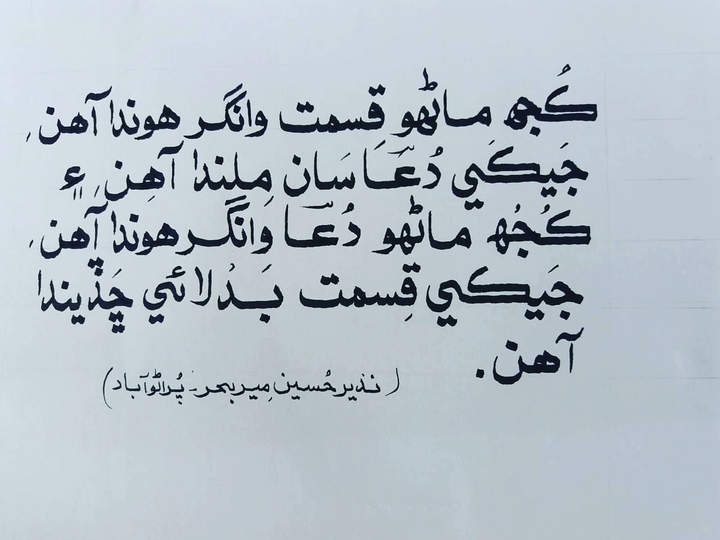 ڪُجھ ماڻهو قسمت وانگر هوندا آهن،
جَيڪَي دُعَا سَان مِلندا آهِن، ۽
ڪُجُھ ماڻهو دُعَا وَانگَر هوندا آهن،
جَيڪي قِسمت بَدلائي ڇَڏيندا
آهن.
(نذير حُسين مِيربحر، پُراڻو آباد)